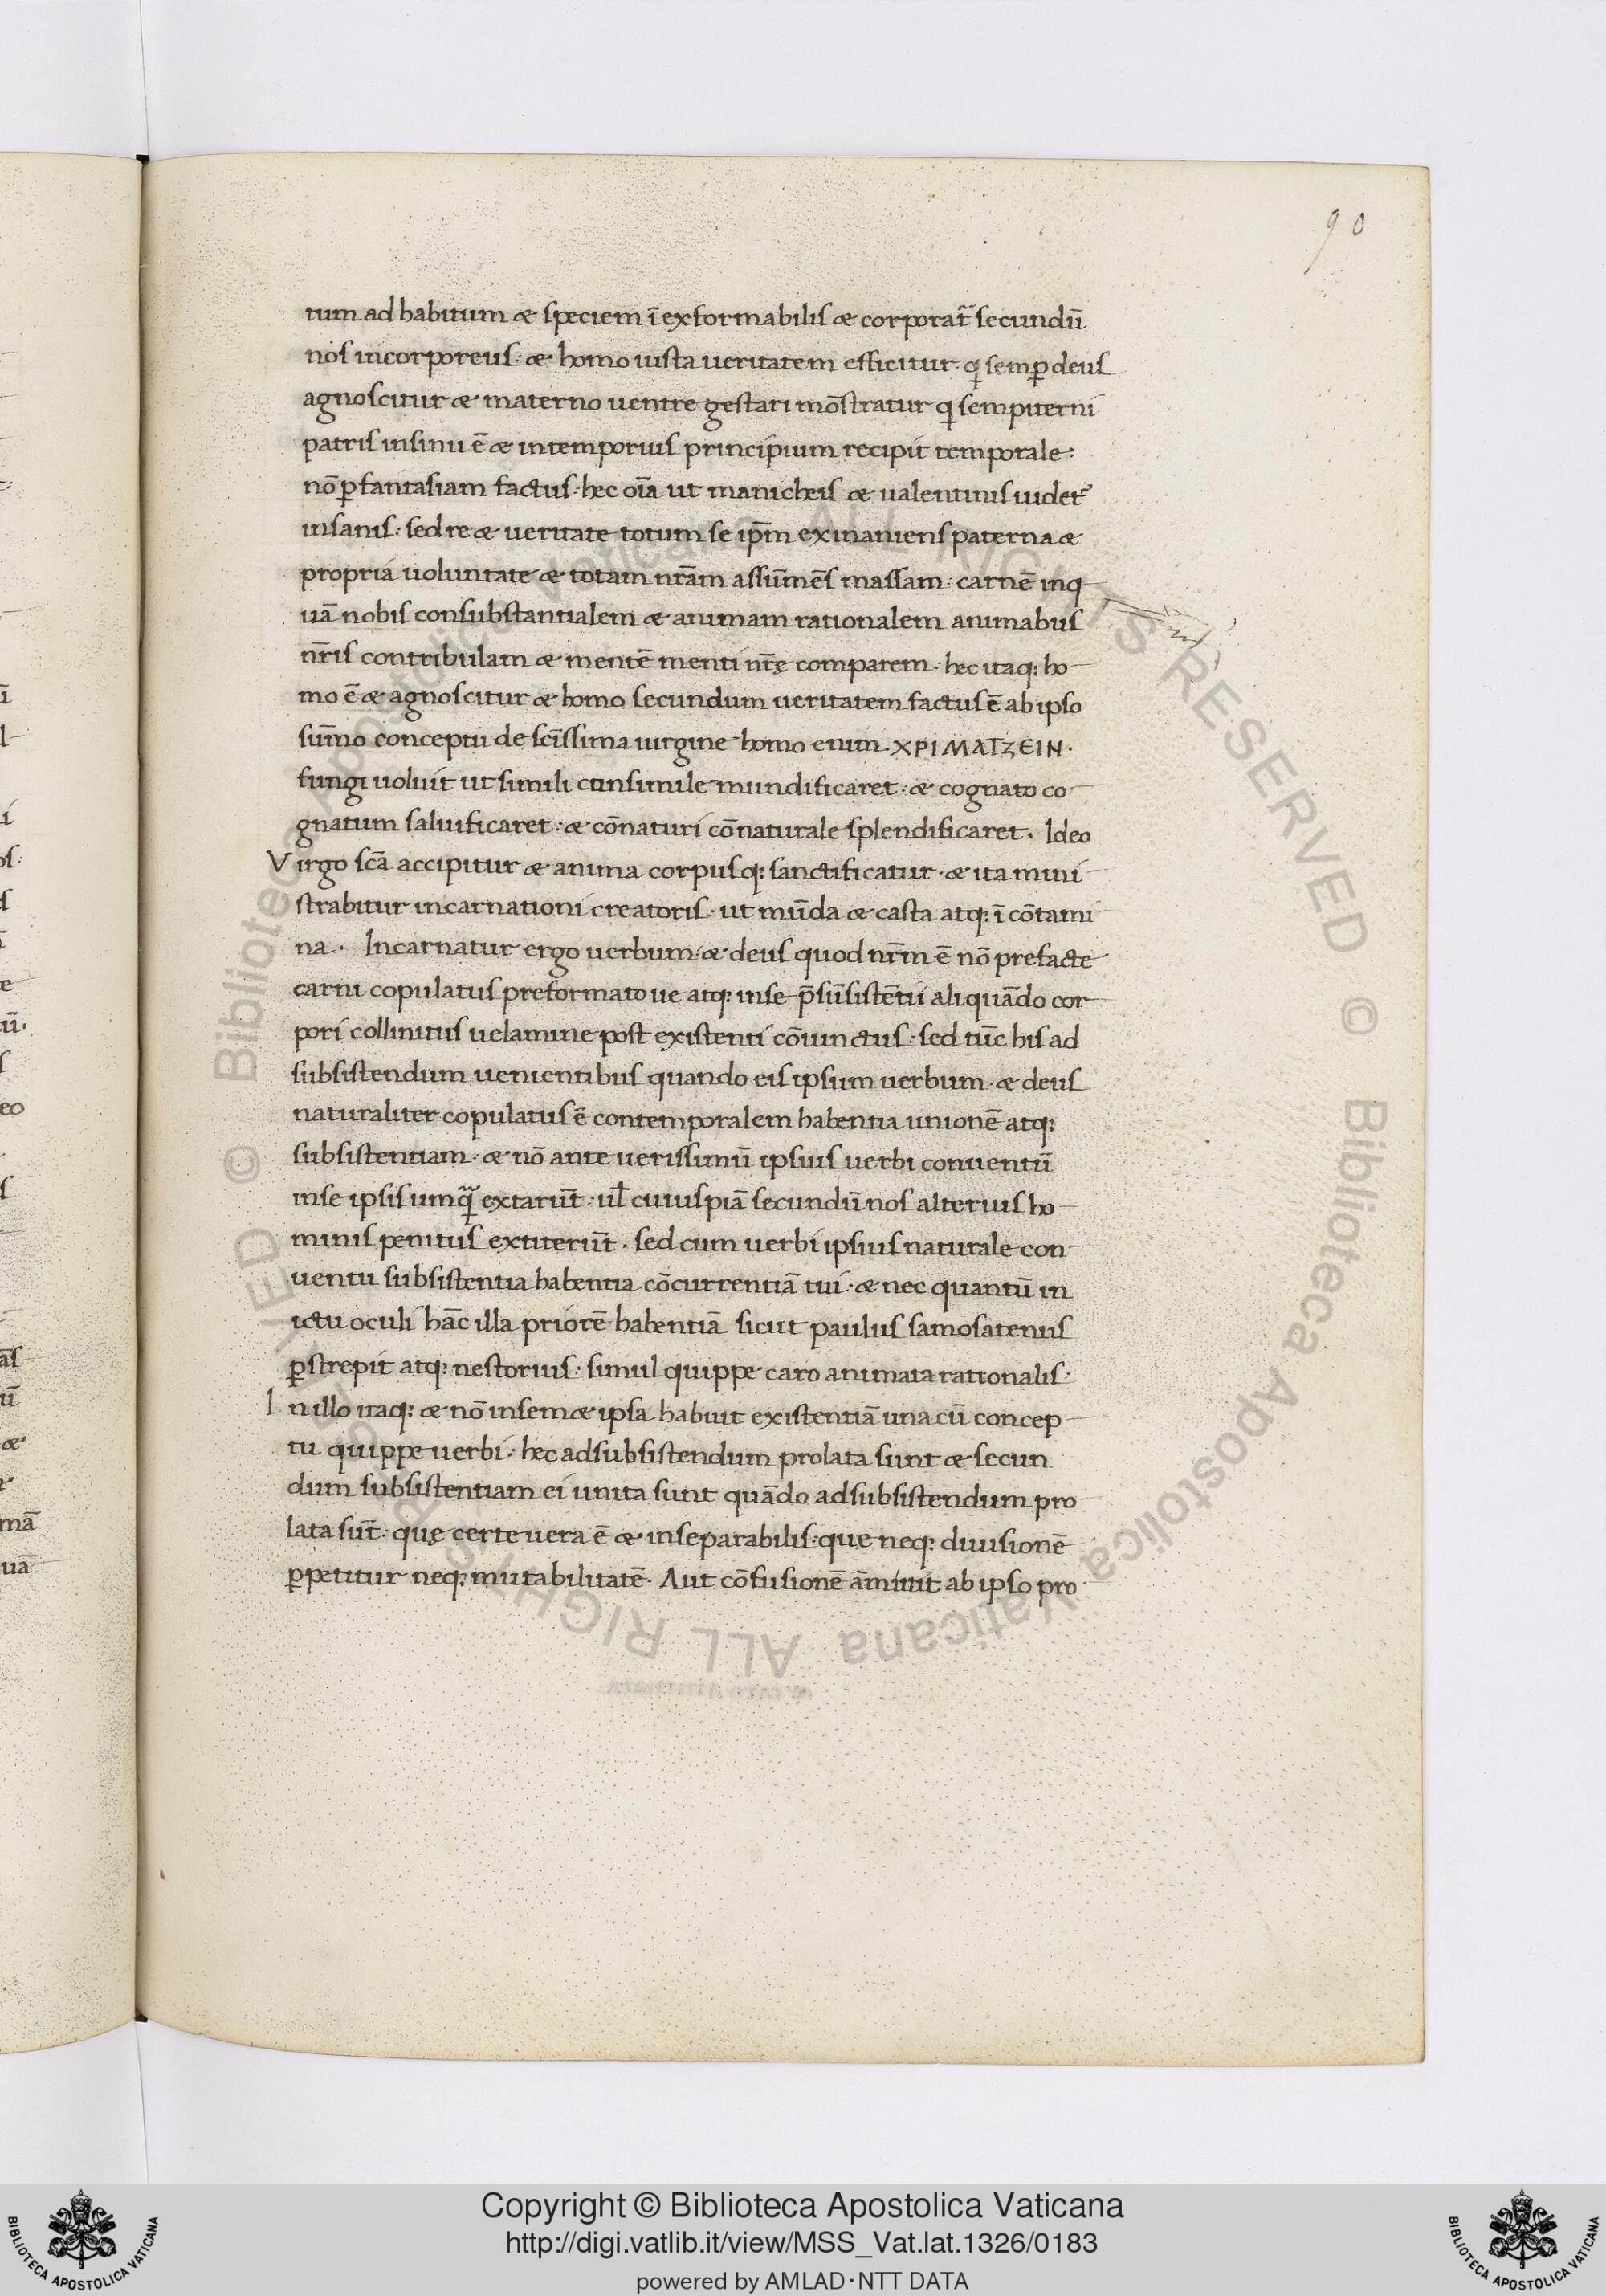 90
tum ad habitum & speciem ī exformabilis & corporat̄ secundū
nos incorporeus· & homo iusta ueritatem efficitur· q semꝑ deus
agnoscitur & materno uentre gestari mōstratur q sempiterni
patris insinu ē & intemporius principium recipit temporale·
nō ꝑ fantasiam factus· hec oīa ut manicheis & ualentinis uidet᷑
insanis· sed re & ueritate totum se ip̄m exinaniens paterna &
propria uoluntate & totam nr̄am assūmēs massam· carnē inq
uā nobis consubstantialem & animam rationalem animabus
nr̄is contribulam & mentē menti nr̄ę comparem· hec itaq; ho
mo ē & agnoscitur & homo secundum ueritatem factus ē ab ipso
sūmo conceptu de scīssima uirgine homo enim ΧΡΙΜΑΤΖΕΙΝ·
fungi uoluit ut simili consimile mundificaret· & cognato co
gnatum saluificaret· & cōnaturi cōnaturale splendificaret. Ideo
Virgo scā accipitur & anima corpusq; sanctificatur· & ita mini
strabitur incarnationi creatoris· ut mūda & casta atq; ī cōtami
na· Incarnatur ergo uerbum· & deus quod nr̄m ē nō prefacte
carni copulatus preformato ue atq; inse p̄sūsistētii aliquādo cor
pori collinitus uelamine post existenti cōiunctus· sed tūc his ad
subsistendum uenientibus quando eis ipsum uerbum· & deus
naturaliter copulatus ē contemporalem habentia unionē atq;
subsistentiam· & nō ante uerissimū ipsius uerbi conuentū
inse ipsis umq̄ extarūt· ul̄ cuiuspiā secundū nos alterius ho
minis penitus extiterūt· sed cum uerbi ipsius naturale con
uentu subsistentia habentia cōcurrentiā tui· & nec quantū in
ictu oculi hāc illa priorē habentiā sicut paulus samosatenus
ꝑstrepit atq; nestorius· simul quippe caro animata rationalis·
In illo itaq; & nō insem& ipsa habuit existentiā una cū concep
tu quippe uerbi· hec adsubsistendum prolata sunt & secun
dum subsistentiam ei unita sunt quādo adsubsistendum pro
lata sūt· quę certe uera ē & inseparabilis· que neq; diuisionē
ꝑpetitur neq; mutabilitatē· Aut cōfusionē āmittit ab ipso pro
Copyright © Biblioteca Apostolica Vaticana
http://digi.vatlib.it/view/MSS_Vat.lat.1326/0183
powered by AMLAD·NTT DATA